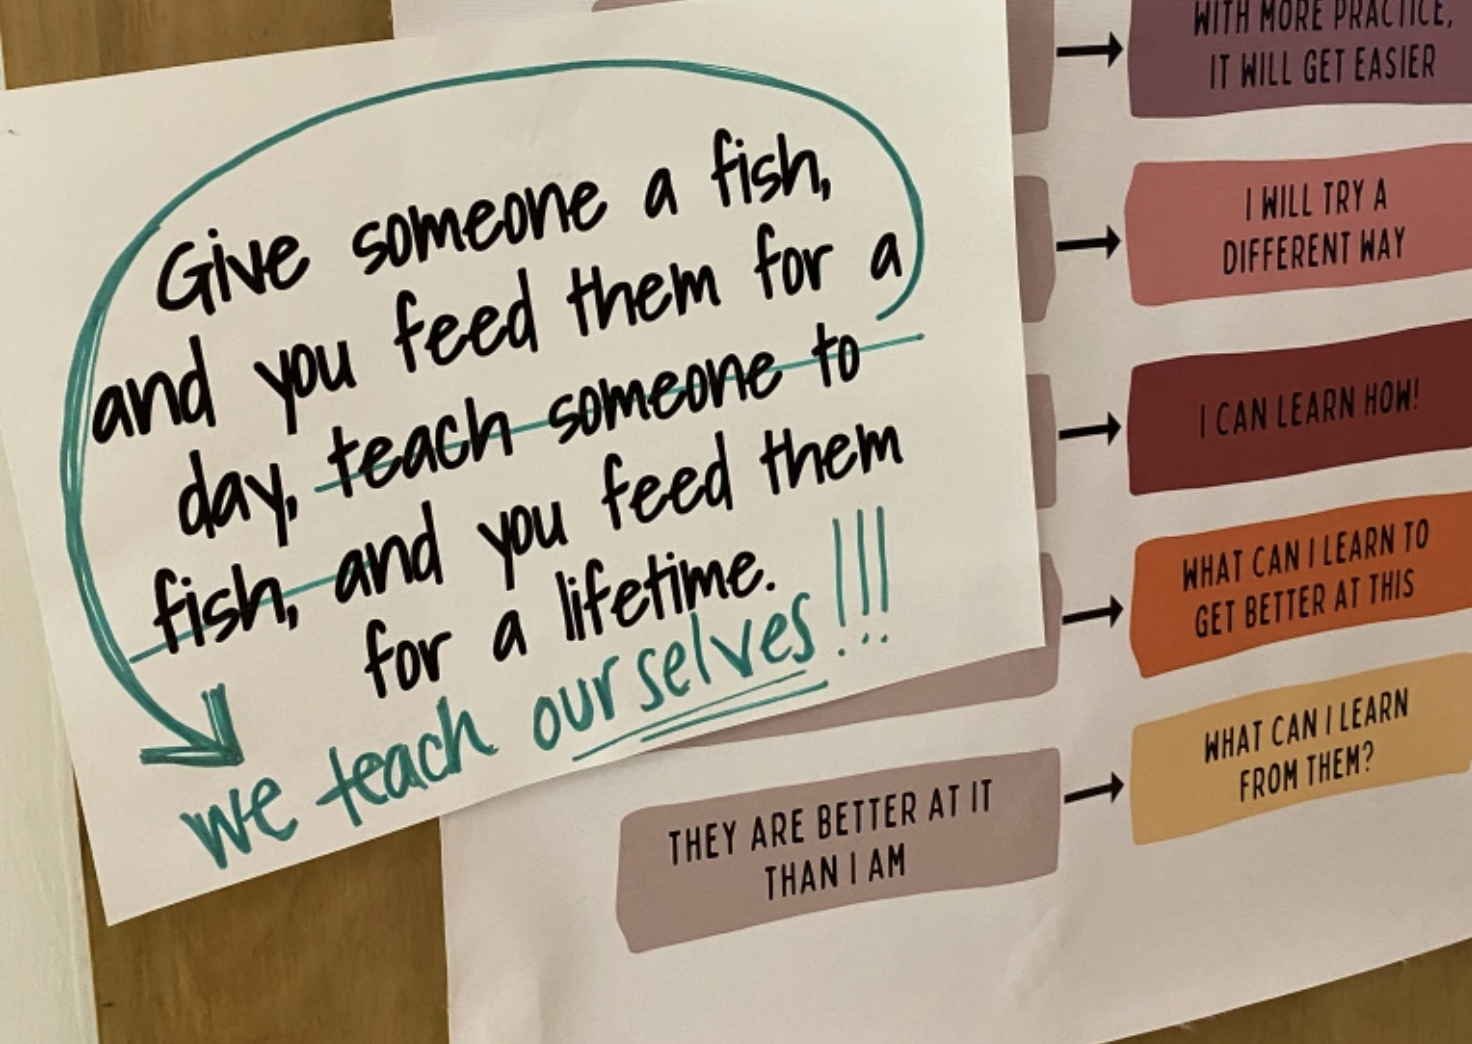 Give someone a fish,
and you feed them for a
day, teach someone to
fish, and you feed them
for a lifetime.
we teach ourselves!!!
WITH MORE PRACTICE,
IT WILL GET EASIER
I WILL TRY A
DIFFERENT WAY
I CAN LEARN HOW!
WHAT CAN I LEARN TO
GET BETTER AT THIS
THEY ARE BETTER AT IT
THAN I AM
WHAT CAN I LEARN
FROM THEM?